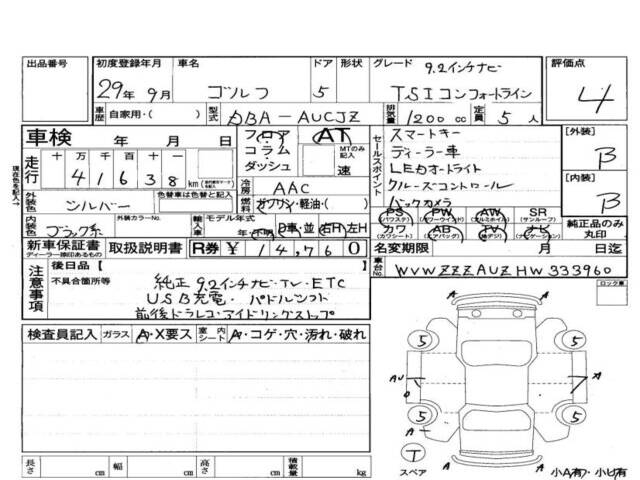 出品番号 初度登録年月 車名 ドア 形状 グレード 9.2インチナビ 評価点
29年9月 ゴルフ 5 TSIコンフォートライン 4
車歴 自家用・( ) 型式 DBA-AUCJZ 排気量 1200cc 定員 5人
車検 年 月 日 シフト フロア コラム ダッシュ AT MTのみ記入 速
セールスポイント スマートキー
ディーラー車
LEDオートライト
クルーズコントロール
バックカメラ
[外装] B
[内装] B
走行 十万千百十一 41638km
現在色を記入
冷房 AAC
外装色 シルバー 色替車は色替と記入 燃料 ガソリン・軽油・( )
内装色 ブラック系 外装カラーNo. 輸入車 モデル年式 年 D車・並 右H 左H
PS (パワステ) PW (パワーウインド) AW (アルミホイル) SR (サンルーフ) 純正品のみ丸印
カワ (カワシート) AB (エアバッグ) TV (地デジ) ナビ (ナビゲーション)
新車保証書 取扱説明書 R券 ¥14,760 名変期限 月 日迄
ディーラー捺印あるもの
車台No. WVWZZZAUZHW333960
注意事項 後日品【 】
不具合箇所等 純正9.2インチナビ・TV・ETC
USB充電・パドルシフト
前後ドラレコ・アイドリングストップ
ロック車
検査員記入 ガラス A・X要ス 室内シート A・コゲ・穴・汚れ・破れ
5 5
AU A
5 5
A A
T
スペア A A
小A有・小U有
長さ cm 幅 cm 高さ cm 積載量 kg